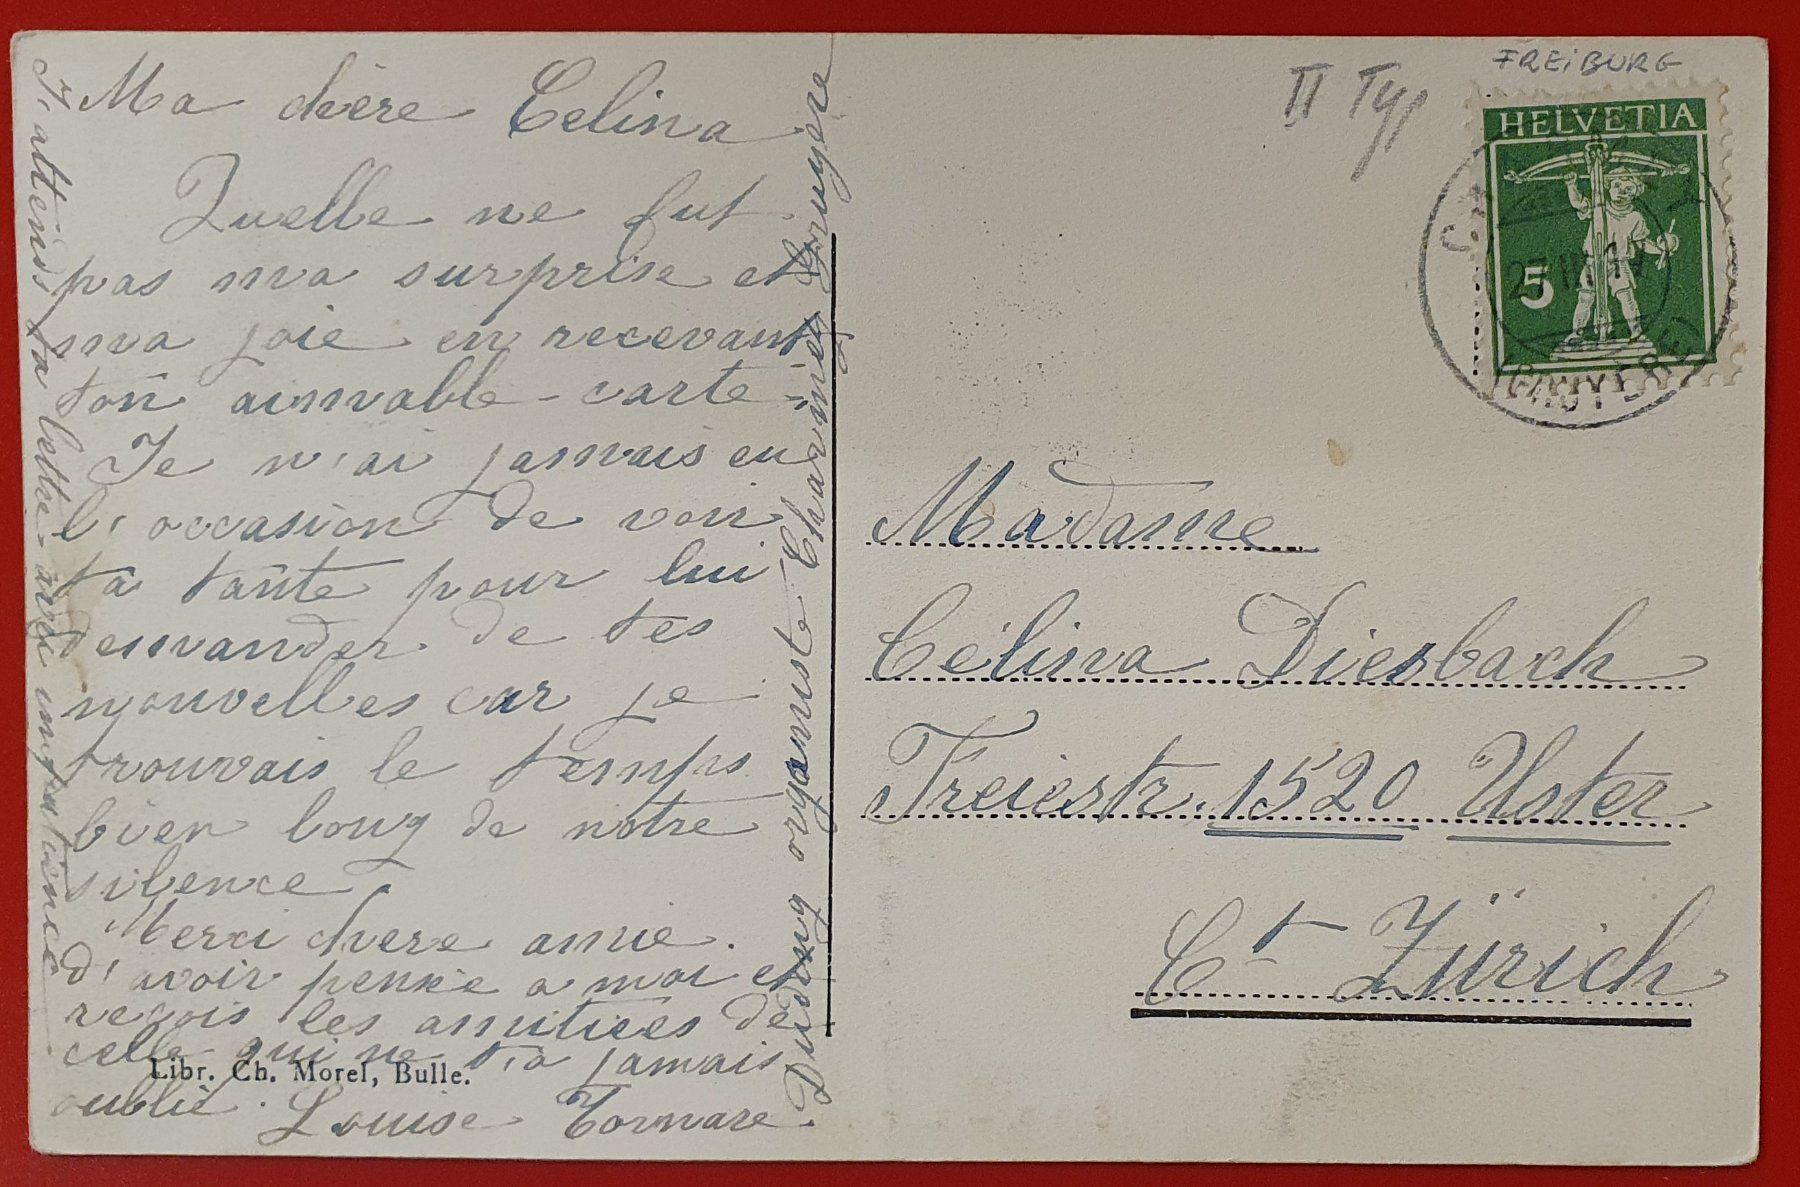 Ma chère Celina
Quelle ne fut
pas ma surprise et
ma joie en recevant
ton aimable carte.
Je n'ai jamais eu
l'occasion de voir
ta tante pour lui
demander de tes
nouvelles car je
trouvais le temps
bien long de notre
silence.
Merci chere amie.
d'avoir pensée a moi et
reçois les amitiées de
celle qui ne t'a jamais
oublié. Louise Tornare
Duding organiste Charmey Gruyere
J'attens ta lettre avec impatience
Libr. Ch. Morel, Bulle.
II Typ
FREIBURG
HELVETIA
5
27 III 17
(GRUYERE)
Madame
Célina Diesbach
Freiestr. 1520 Uster
Ct Zürich